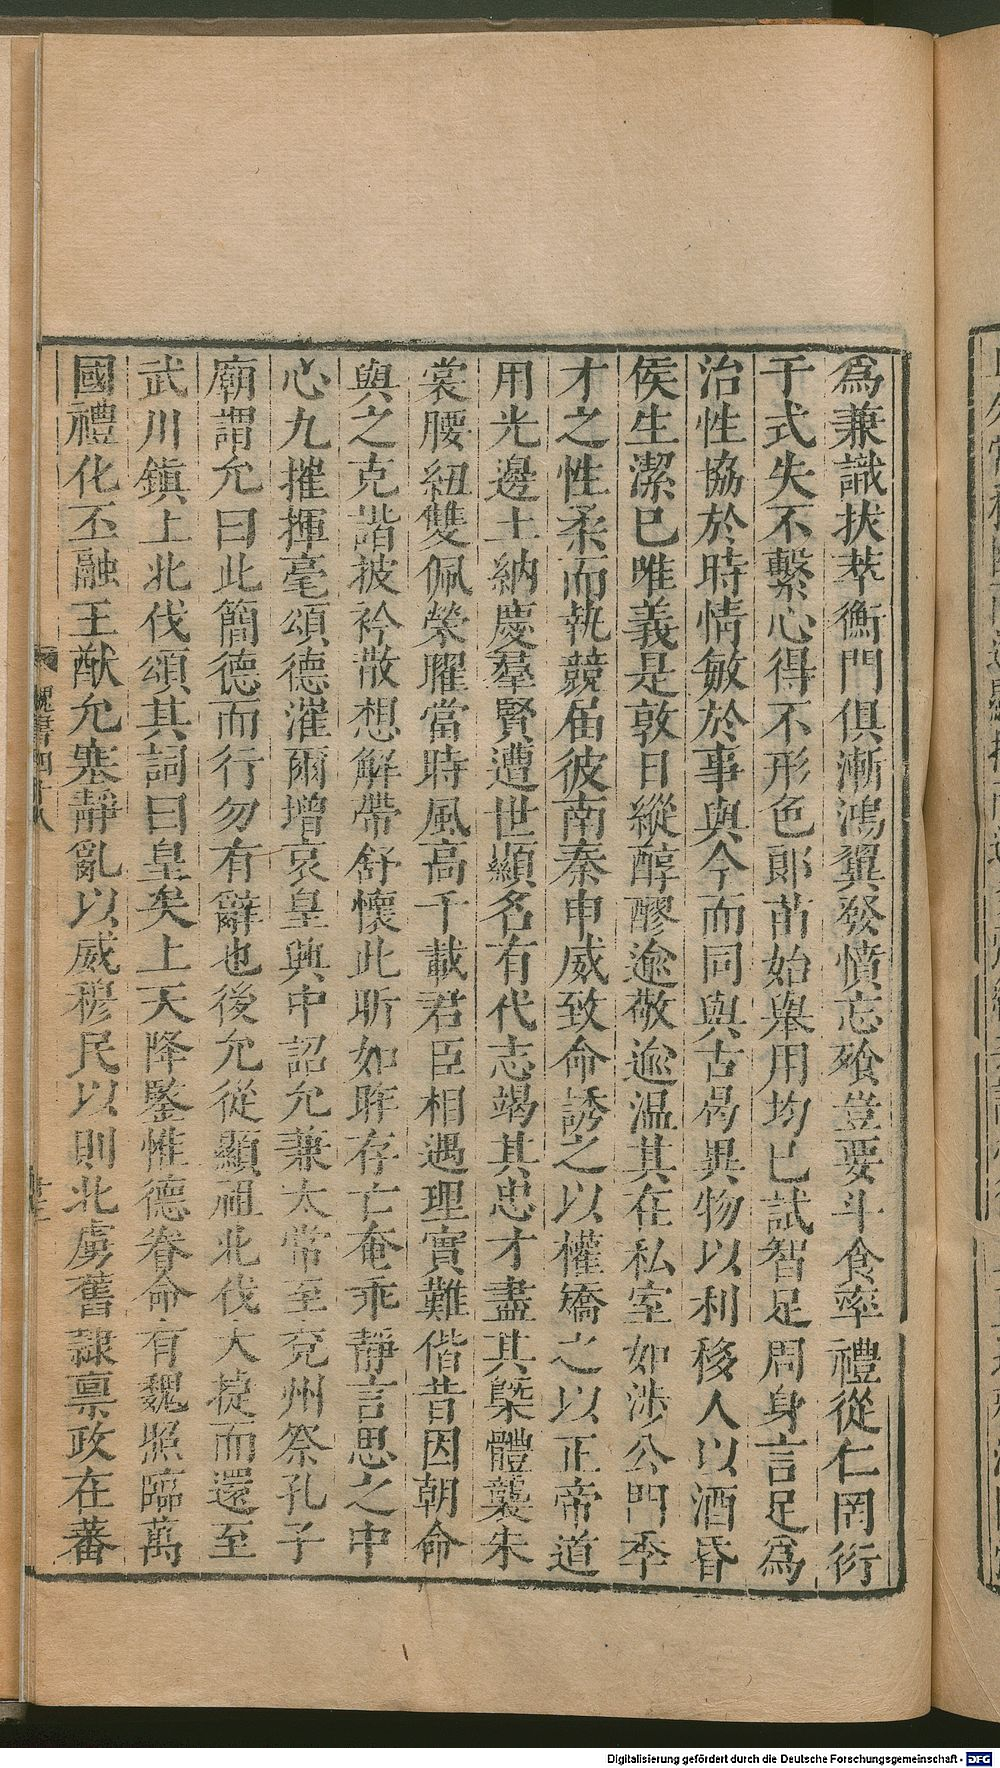 爲兼識拔萃衡門俱漸鴻翼發憤忘飧豈要斗食率禮從仁罔愆
于式失不繫心得不形色郎苗始舉用均已試智足周身言足爲
治性協於時情敏於事與今而同與古曷異物以利移人以酒昏
侯生潔已唯義是敦日縱醇醪逾敬逾温其在私室如涉公門季
才之性柔而執競届彼南秦申威致命誘之以權矯之以正帝道
用光邊土納慶羣賢遭世顯名有代志竭其忠才盡其槩體襲朱
裳腰紐雙佩榮曜當時風高千載君臣相遇理實難偕昔因朝命
與之克諧披衿散想解帶舒懷此昕如昨存亡奄乖靜言思之中
心九摧揮毫頌德漼爾增哀皇興中詔允兼太常至兗州祭孔子
廟謂允曰此簡德而行勿有辭也後允從顯祖北伐大捷而還至
武川鎮上北伐頌其詞曰皇矣上天降鑒惟德眷命有魏照臨萬
國禮化丕融王猷允塞靜亂以威穆民以則北虜舊隷禀政在蕃
魏書四十八
Digitalisierung gefördert durch die Deutsche Forschungsgemeinschaft - DFG